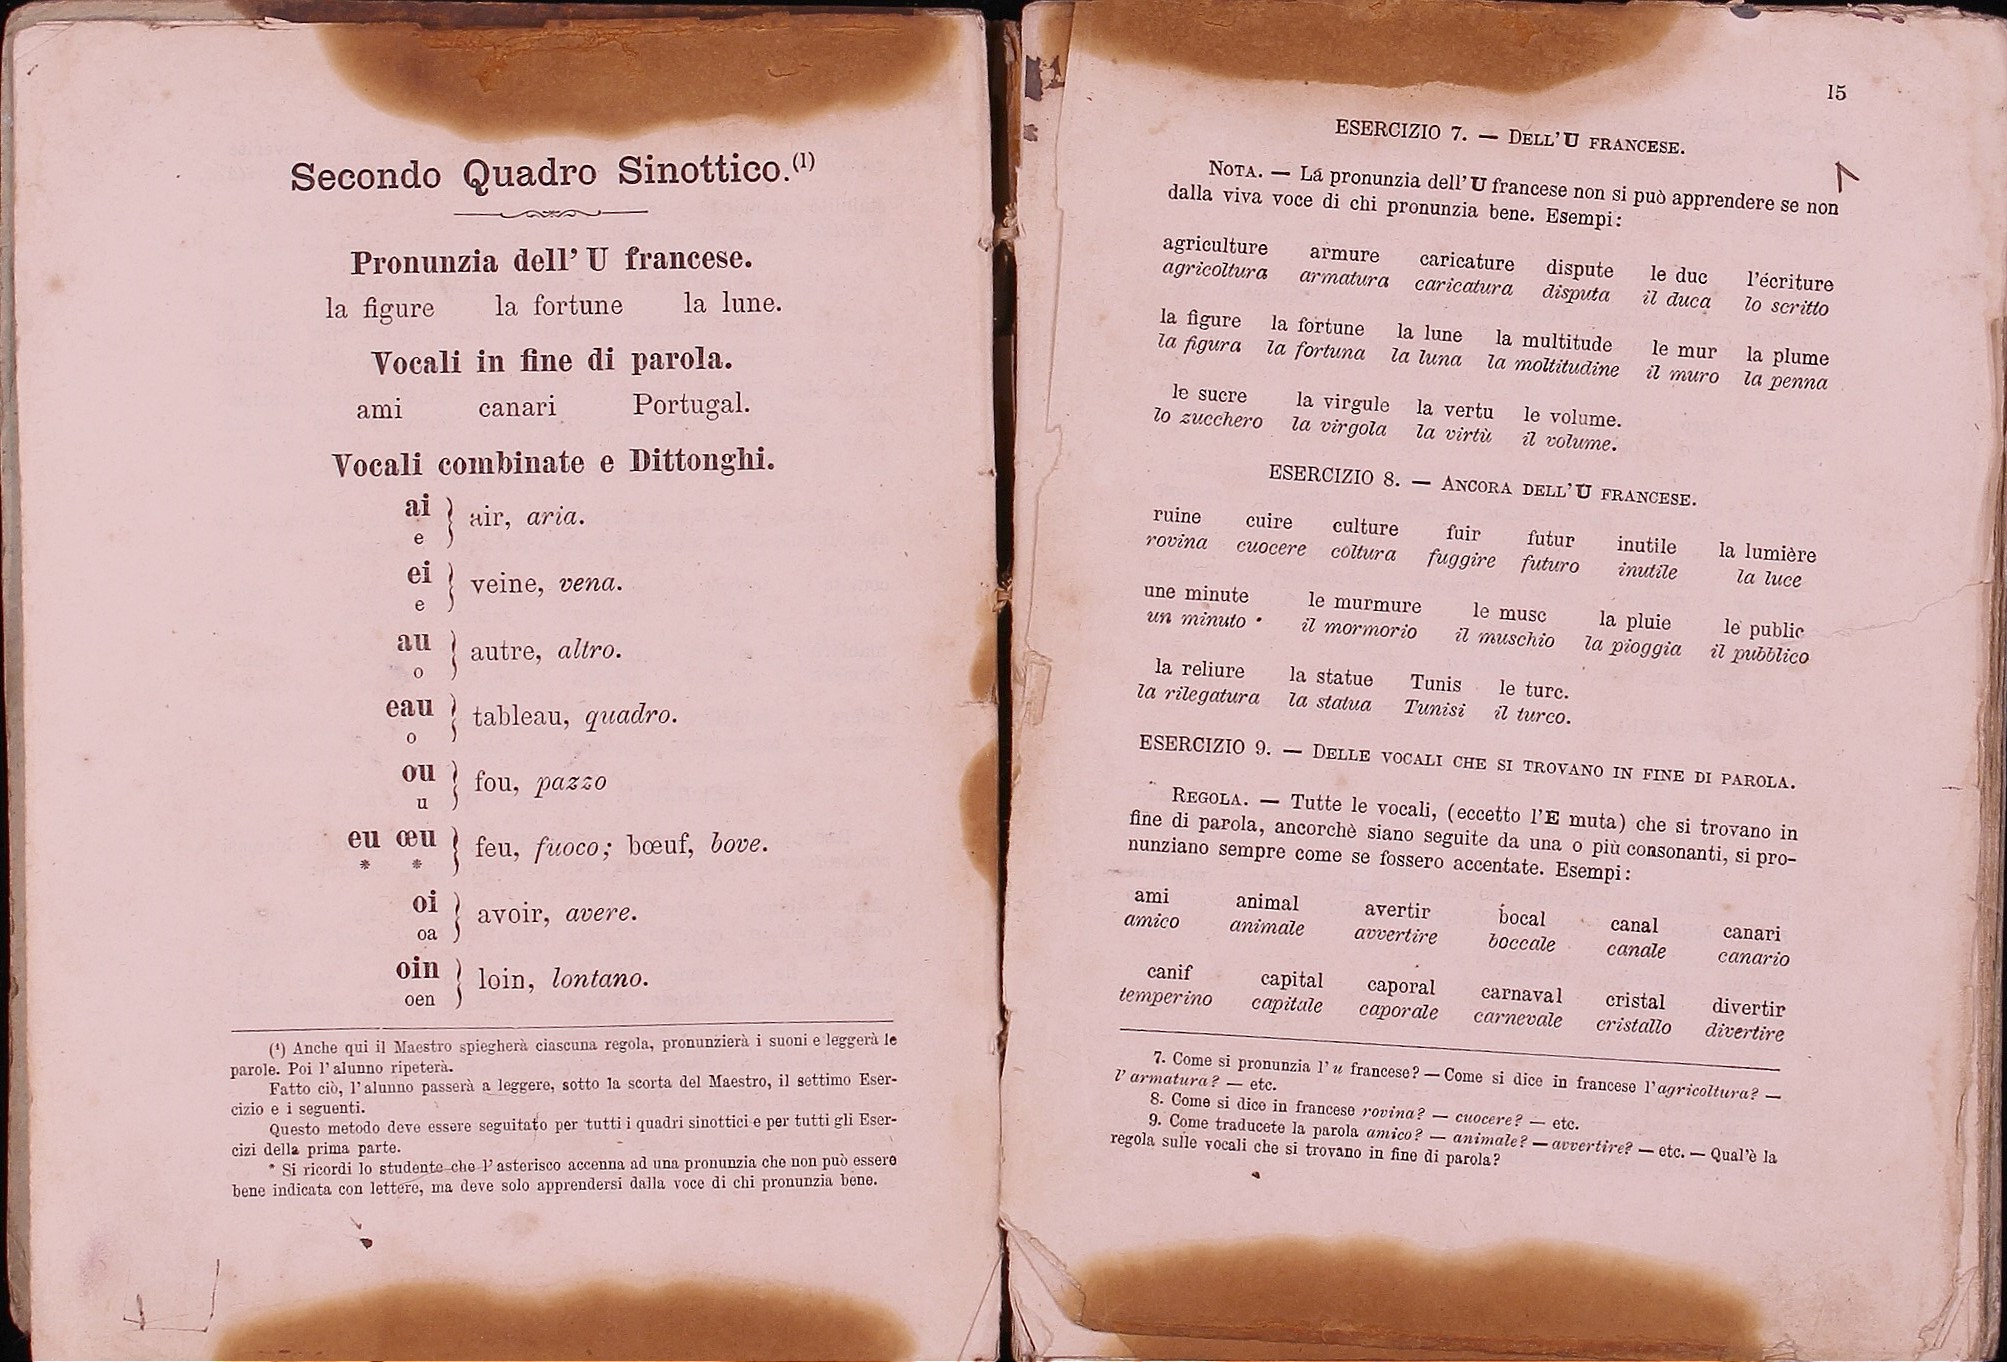 Secondo Quadro Sinottico.(1)
Pronunzia dell' U francese.
la figure la fortune la lune.
Vocali in fine di parola.
ami canari Portugal.
Vocali combinate e Dittonghi.
ai } air, aria.
e
ei } veine, vena.
e
au } autre, altro.
o
eau } tableau, quadro.
o
ou } fou, pazzo
u
eu œu } feu, fuoco; bœuf, bove.
* *
oi } avoir, avere.
oa
oin } loin, lontano.
oen
(1) Anche qui il Maestro spiegherà ciascuna regola, pronunzierà i suoni e leggerà le
parole. Poi l'alunno ripeterà.
Fatto ciò, l'alunno passerà a leggere, sotto la scorta del Maestro, il settimo Eser-
cizio e i seguenti.
Questo metodo deve essere seguitato per tutti i quadri sinottici e per tutti gli Eser-
cizi della prima parte.
* Si ricordi lo studente che l'asterisco accenna ad una pronunzia che non può essere
bene indicata con lettere, ma deve solo apprendersi dalla voce di chi pronunzia bene.
15
ESERCIZIO 7. — DELL'U FRANCESE.
NOTA. — La pronunzia dell'U francese non si può apprendere se non
dalla viva voce di chi pronunzia bene. Esempi:
agriculture armure caricature dispute le duc l'écriture
agricoltura armatura caricatura disputa il duca lo scritto
la figure la fortune la lune la multitude le mur la plume
la figura la fortuna la luna la moltitudine il muro la penna
le sucre la virgule la vertu le volume.
lo zucchero la virgola la virtù il volume.
ESERCIZIO 8. — ANCORA DELL'U FRANCESE.
ruine cuire culture fuir futur inutile la lumière
rovina cuocere coltura fuggire futuro inutile la luce
une minute le murmure le musc la pluie le public
un minuto il mormorio il muschio la pioggia il pubblico
la reliure la statue Tunis le turc.
la rilegatura la statua Tunisi il turco.
ESERCIZIO 9. — DELLE VOCALI CHE SI TROVANO IN FINE DI PAROLA.
REGOLA. — Tutte le vocali, (eccetto l'E muta) che si trovano in
fine di parola, ancorchè siano seguite da una o più consonanti, si pro-
nunziano sempre come se fossero accentate. Esempi:
ami animal avertir bocal canal canari
amico animale avvertire boccale canale canario
canif capital caporal carnaval cristal divertir
temperino capitale caporale carnevale cristallo divertire
7. Come si pronunzia l'u francese? — Come si dice in francese l'agricoltura? —
l'armatura? — etc.
8. Come si dice in francese rovina? — cuocere? — etc.
9. Come traducete la parola amico? — animale? — avvertire? — etc. — Qual'è la
regola sulle vocali che si trovano in fine di parola?